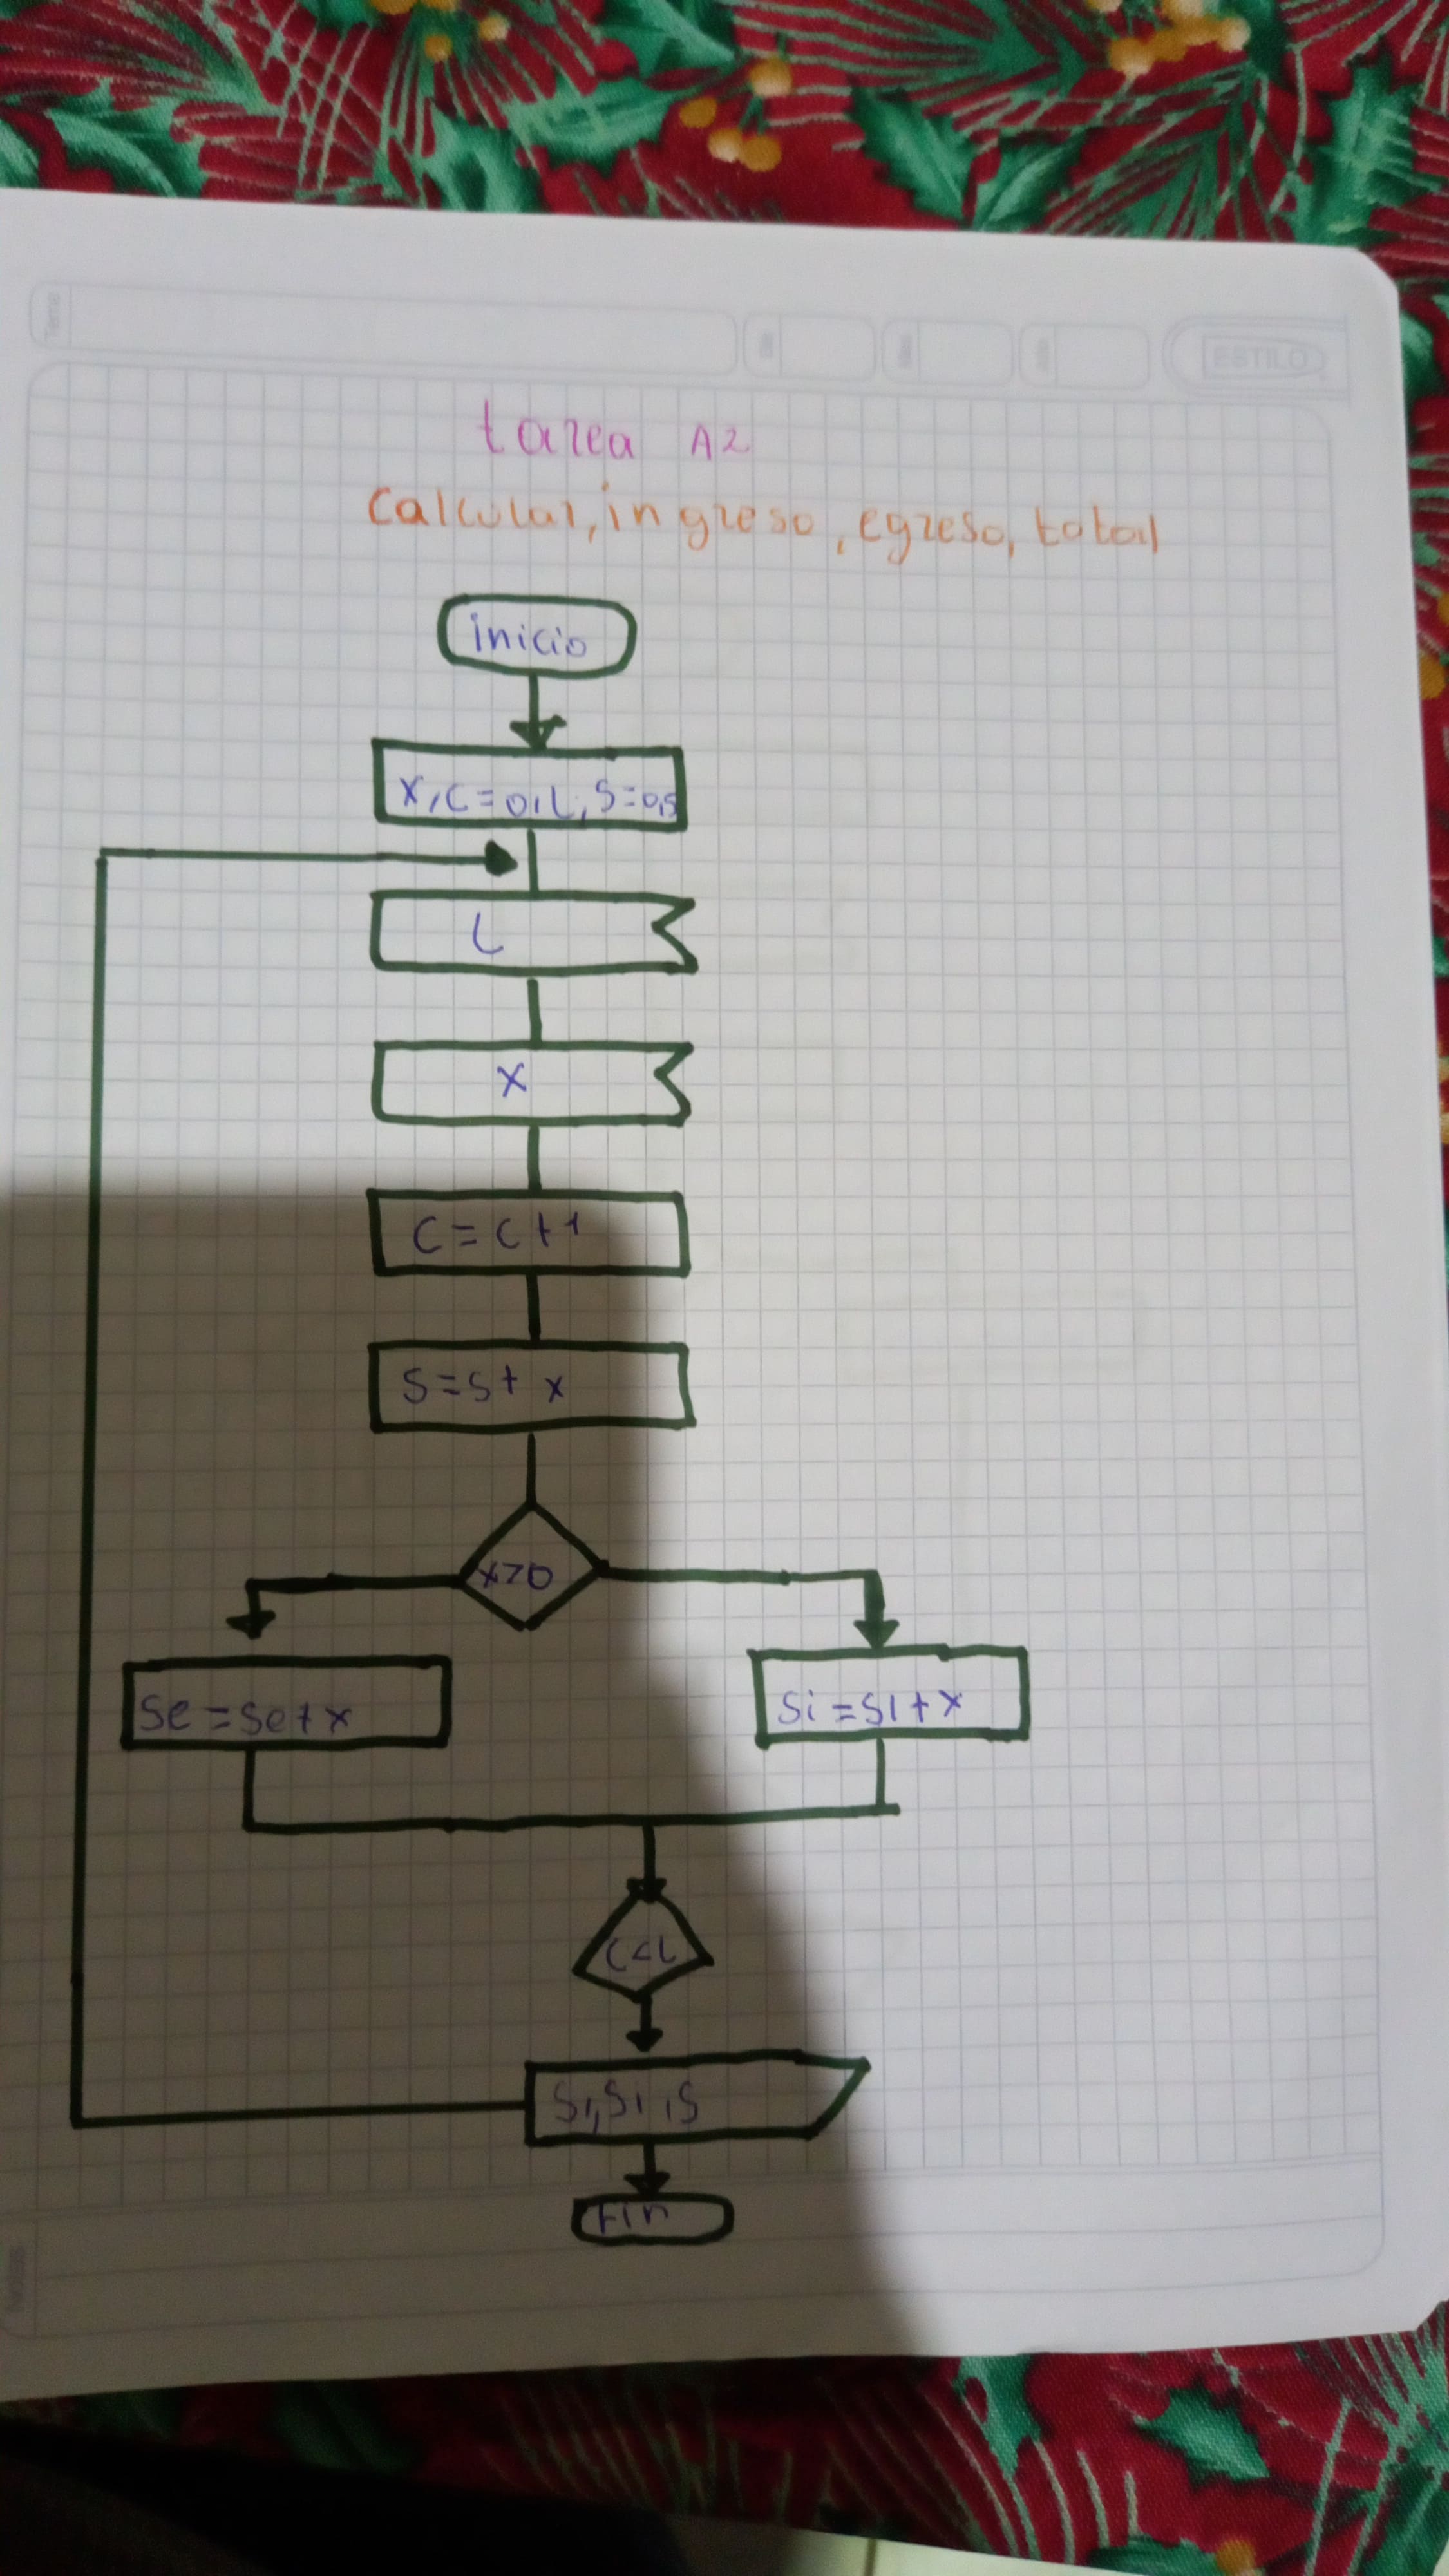 ESTILO
tarea A2
Calcular, ingreso, egreso, total
inicio
X, C=0, L, S=0,S
L
X
C=C+1
S=S+ x
x>0
Se=Se+x
Si=Si+x
C<L
Si, Si, S
Fin